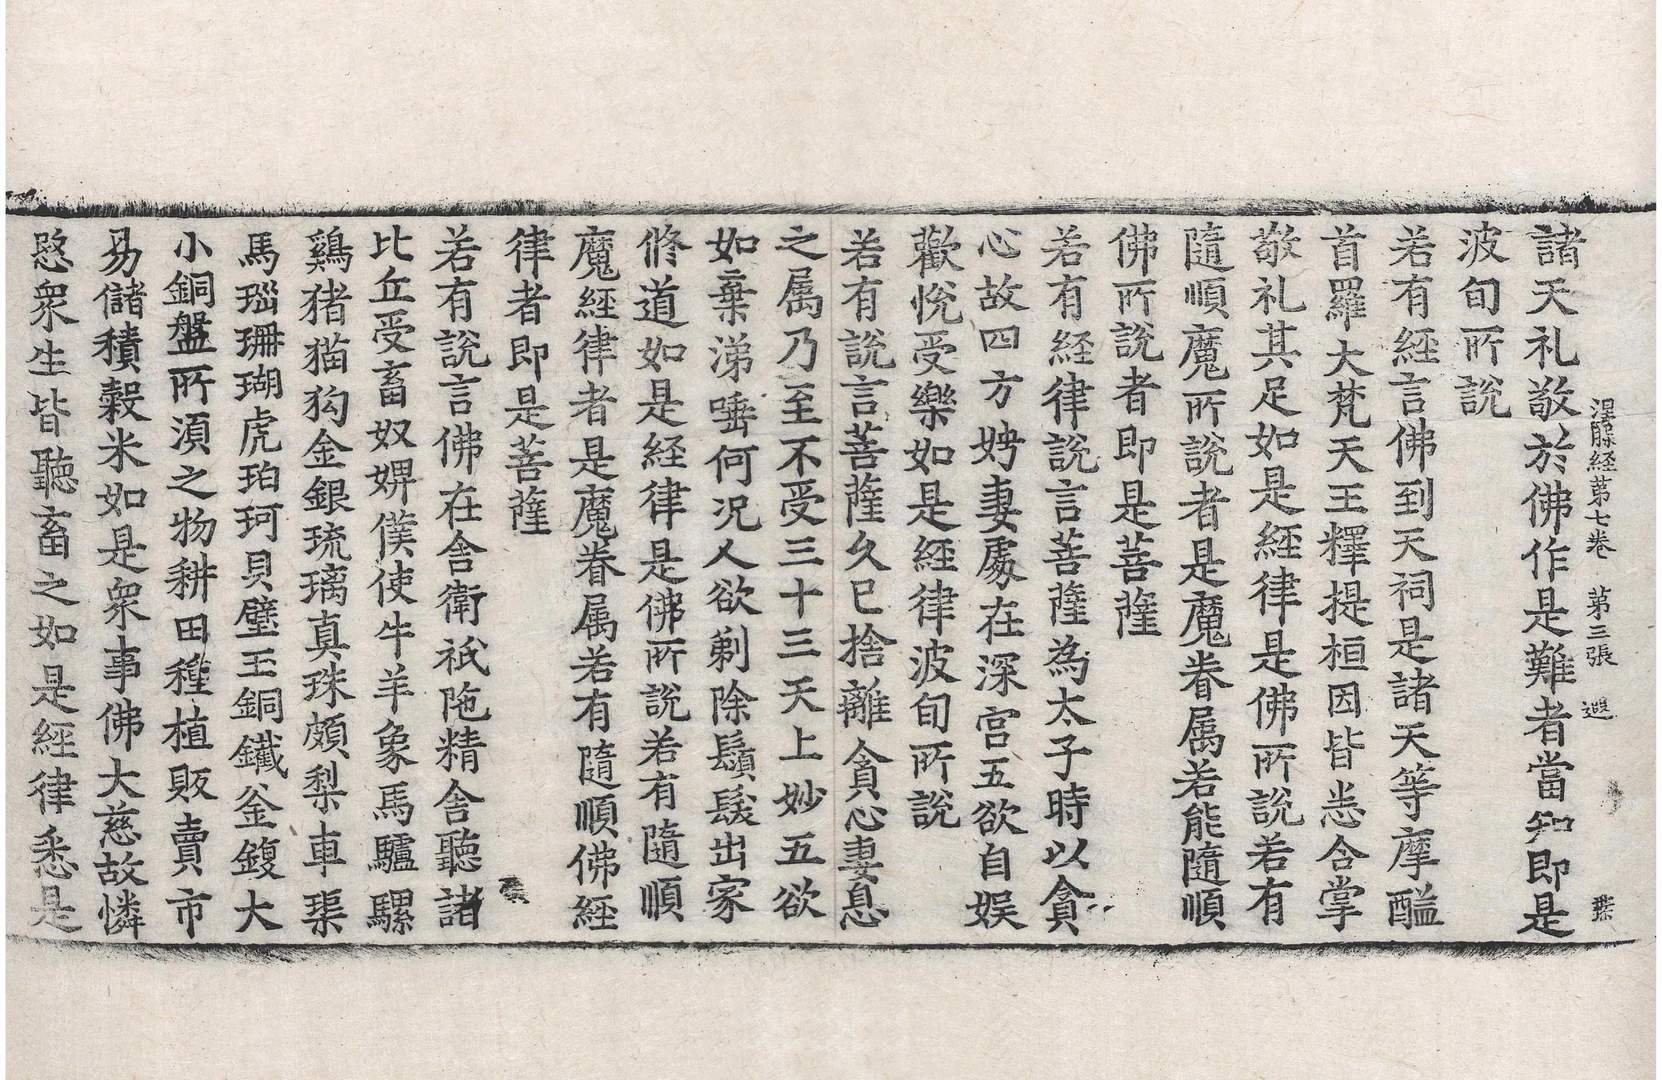 涅槃経第七卷 第三張 遐
諸天礼敬於佛作是難者當知即是
波旬所説
若有經言佛到天祠是諸天等摩醯
首羅大梵天王釋提桓因皆悉合掌
敬礼其足如是經律是佛所說若有
隨順魔所說者是魔眷属若能隨順
佛所說者即是菩薩
若有經律說言菩薩為太子時以貪
心故四方娉妻處在深宫五欲自娱
歡悅受樂如是經律波旬所說
若有說言菩薩久已捨離貪心妻息
之属乃至不受三十三天上妙五欲
如棄涕唾何况人欲剃除鬚髮出家
脩道如是經律是佛所說若有隨順
魔經律者是魔眷属若有隨順佛經
律者即是菩薩
若有說言佛在舍衛祇陁精舍聽諸
比丘受畜奴婢僕使牛羊象馬驢騾
鷄猪猫狗金銀琉璃真珠頗梨車璖
馬瑙珊瑚虎珀珂貝璧玉銅鐵釜鍑大
小銅盤所湏之物耕田種植販賣市
易儲積穀米如是衆事佛大慈故憐
愍衆生皆聽畜之如是經律悉是